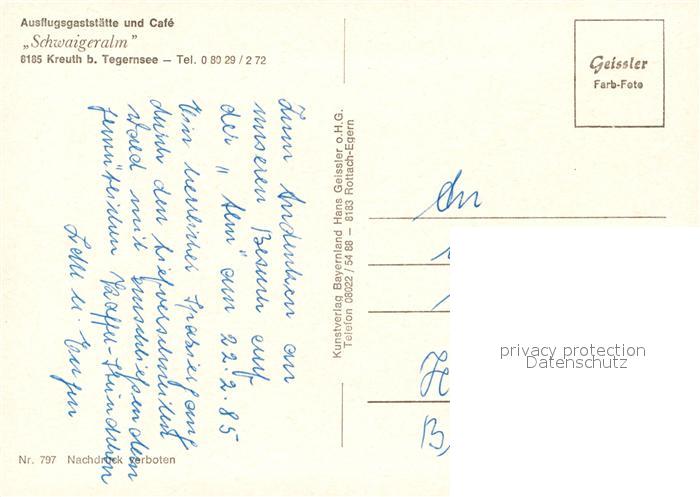 Ausflugsgaststätte und Café
„Schwaigeralm"
8185 Kreuth b. Tegernsee – Tel. 0 80 29 / 2 72
Zum Andenken an
unseren Besuch auf
der „Alm" am 22.2.85
Ein herrlicher Spaziergang
durch den tiefverschneiten
Wald mit anschließendem
Kaffee-
u. Eugen
Nr. 797 Nachdruck verboten
Kunstverlag Bayernland Hans Geissler o.H.G.
Telefon 08022 / 54 88 – 8183 Rottach-Egern
Geissler
Farb-Foto
An
H
B
privacy protection
Datenschutz